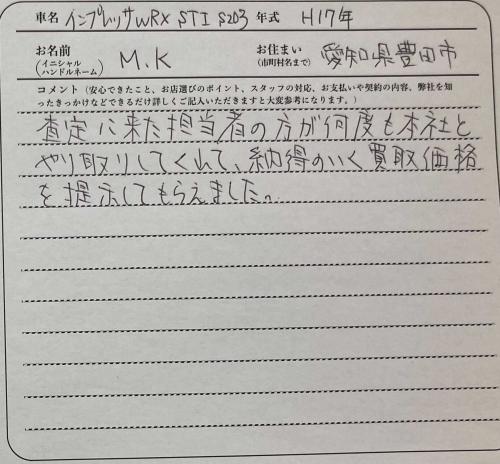 車名 インプレッサWRX STI S203 年式 H17年
お名前 (イニシャル ハンドルネーム) M.K お住まい (市町村名まで) 愛知県豊田市
コメント（安心できたこと、お店選びのポイント、スタッフの対応、お支払いや契約の内容、弊社を知
ったきっかけなどできるだけ詳しくご記入いただきますと大変参考になります。）
査定に来た担当者の方が何度も本社と
やり取りしてくれて、納得のいく買取価格
を提示してもらえました。